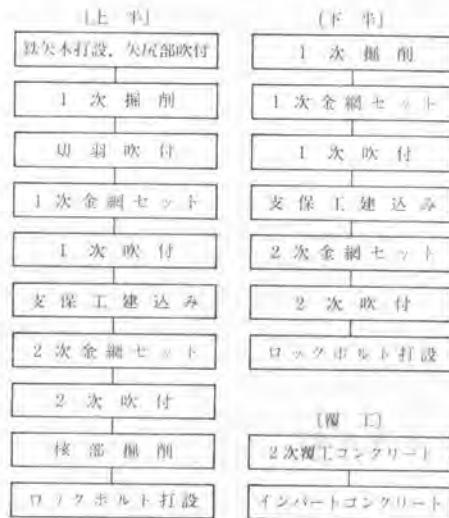 〔上半〕
鉄矢木打設，矢尻部吹付
1次掘削
切羽吹付
1次金網セット
1次吹付
支保工建込み
2次金網セット
2次吹付
核部掘削
ロックボルト打設
〔下半〕
1次掘削
1次金網セット
1次吹付
支保工建込み
2次金網セット
2次吹付
ロックボルト打設
〔覆工〕
2次覆工コンクリート
インバートコンクリート